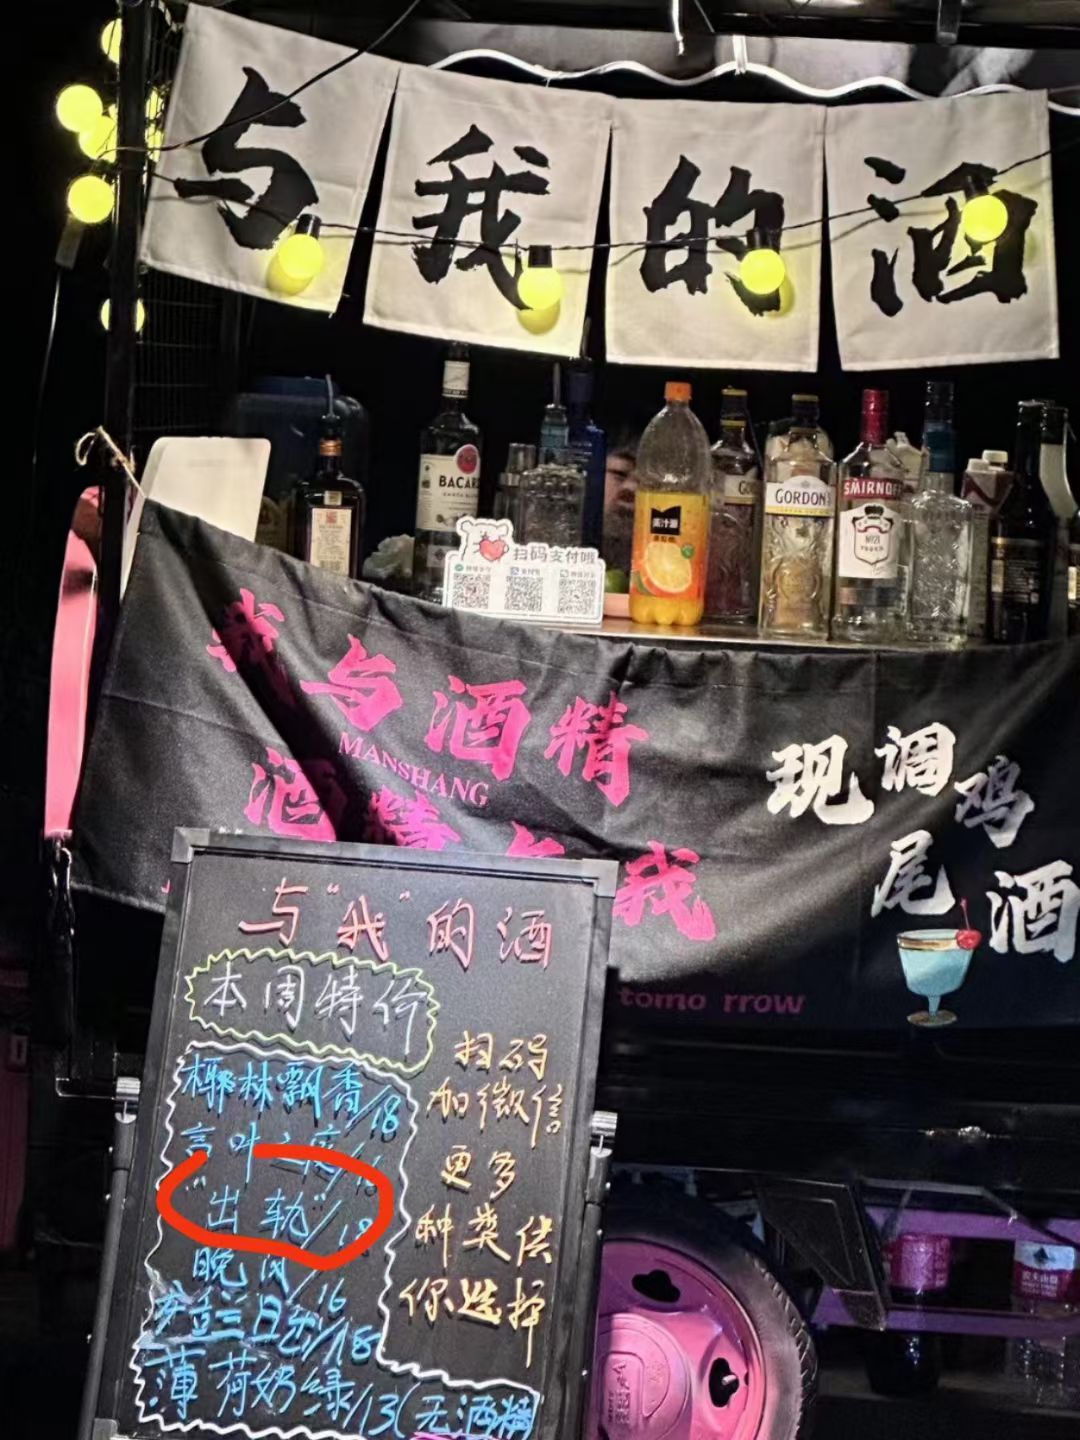 与我的酒
BACARDI
GORDON'S
SMIRNOFF
No21
VODKA
美汁源
扫码支付哦
我与酒精
MANSHANG
酒精与我
现调鸡尾酒
tomo rrow
与"我"的酒
本周特价
椰林飘香/18
言叶之庭/18
"出轨"/18
晚风/16
梦三日/18
薄荷奶绿/13(无酒精
扫码
加微信
更多
种类供
你选择